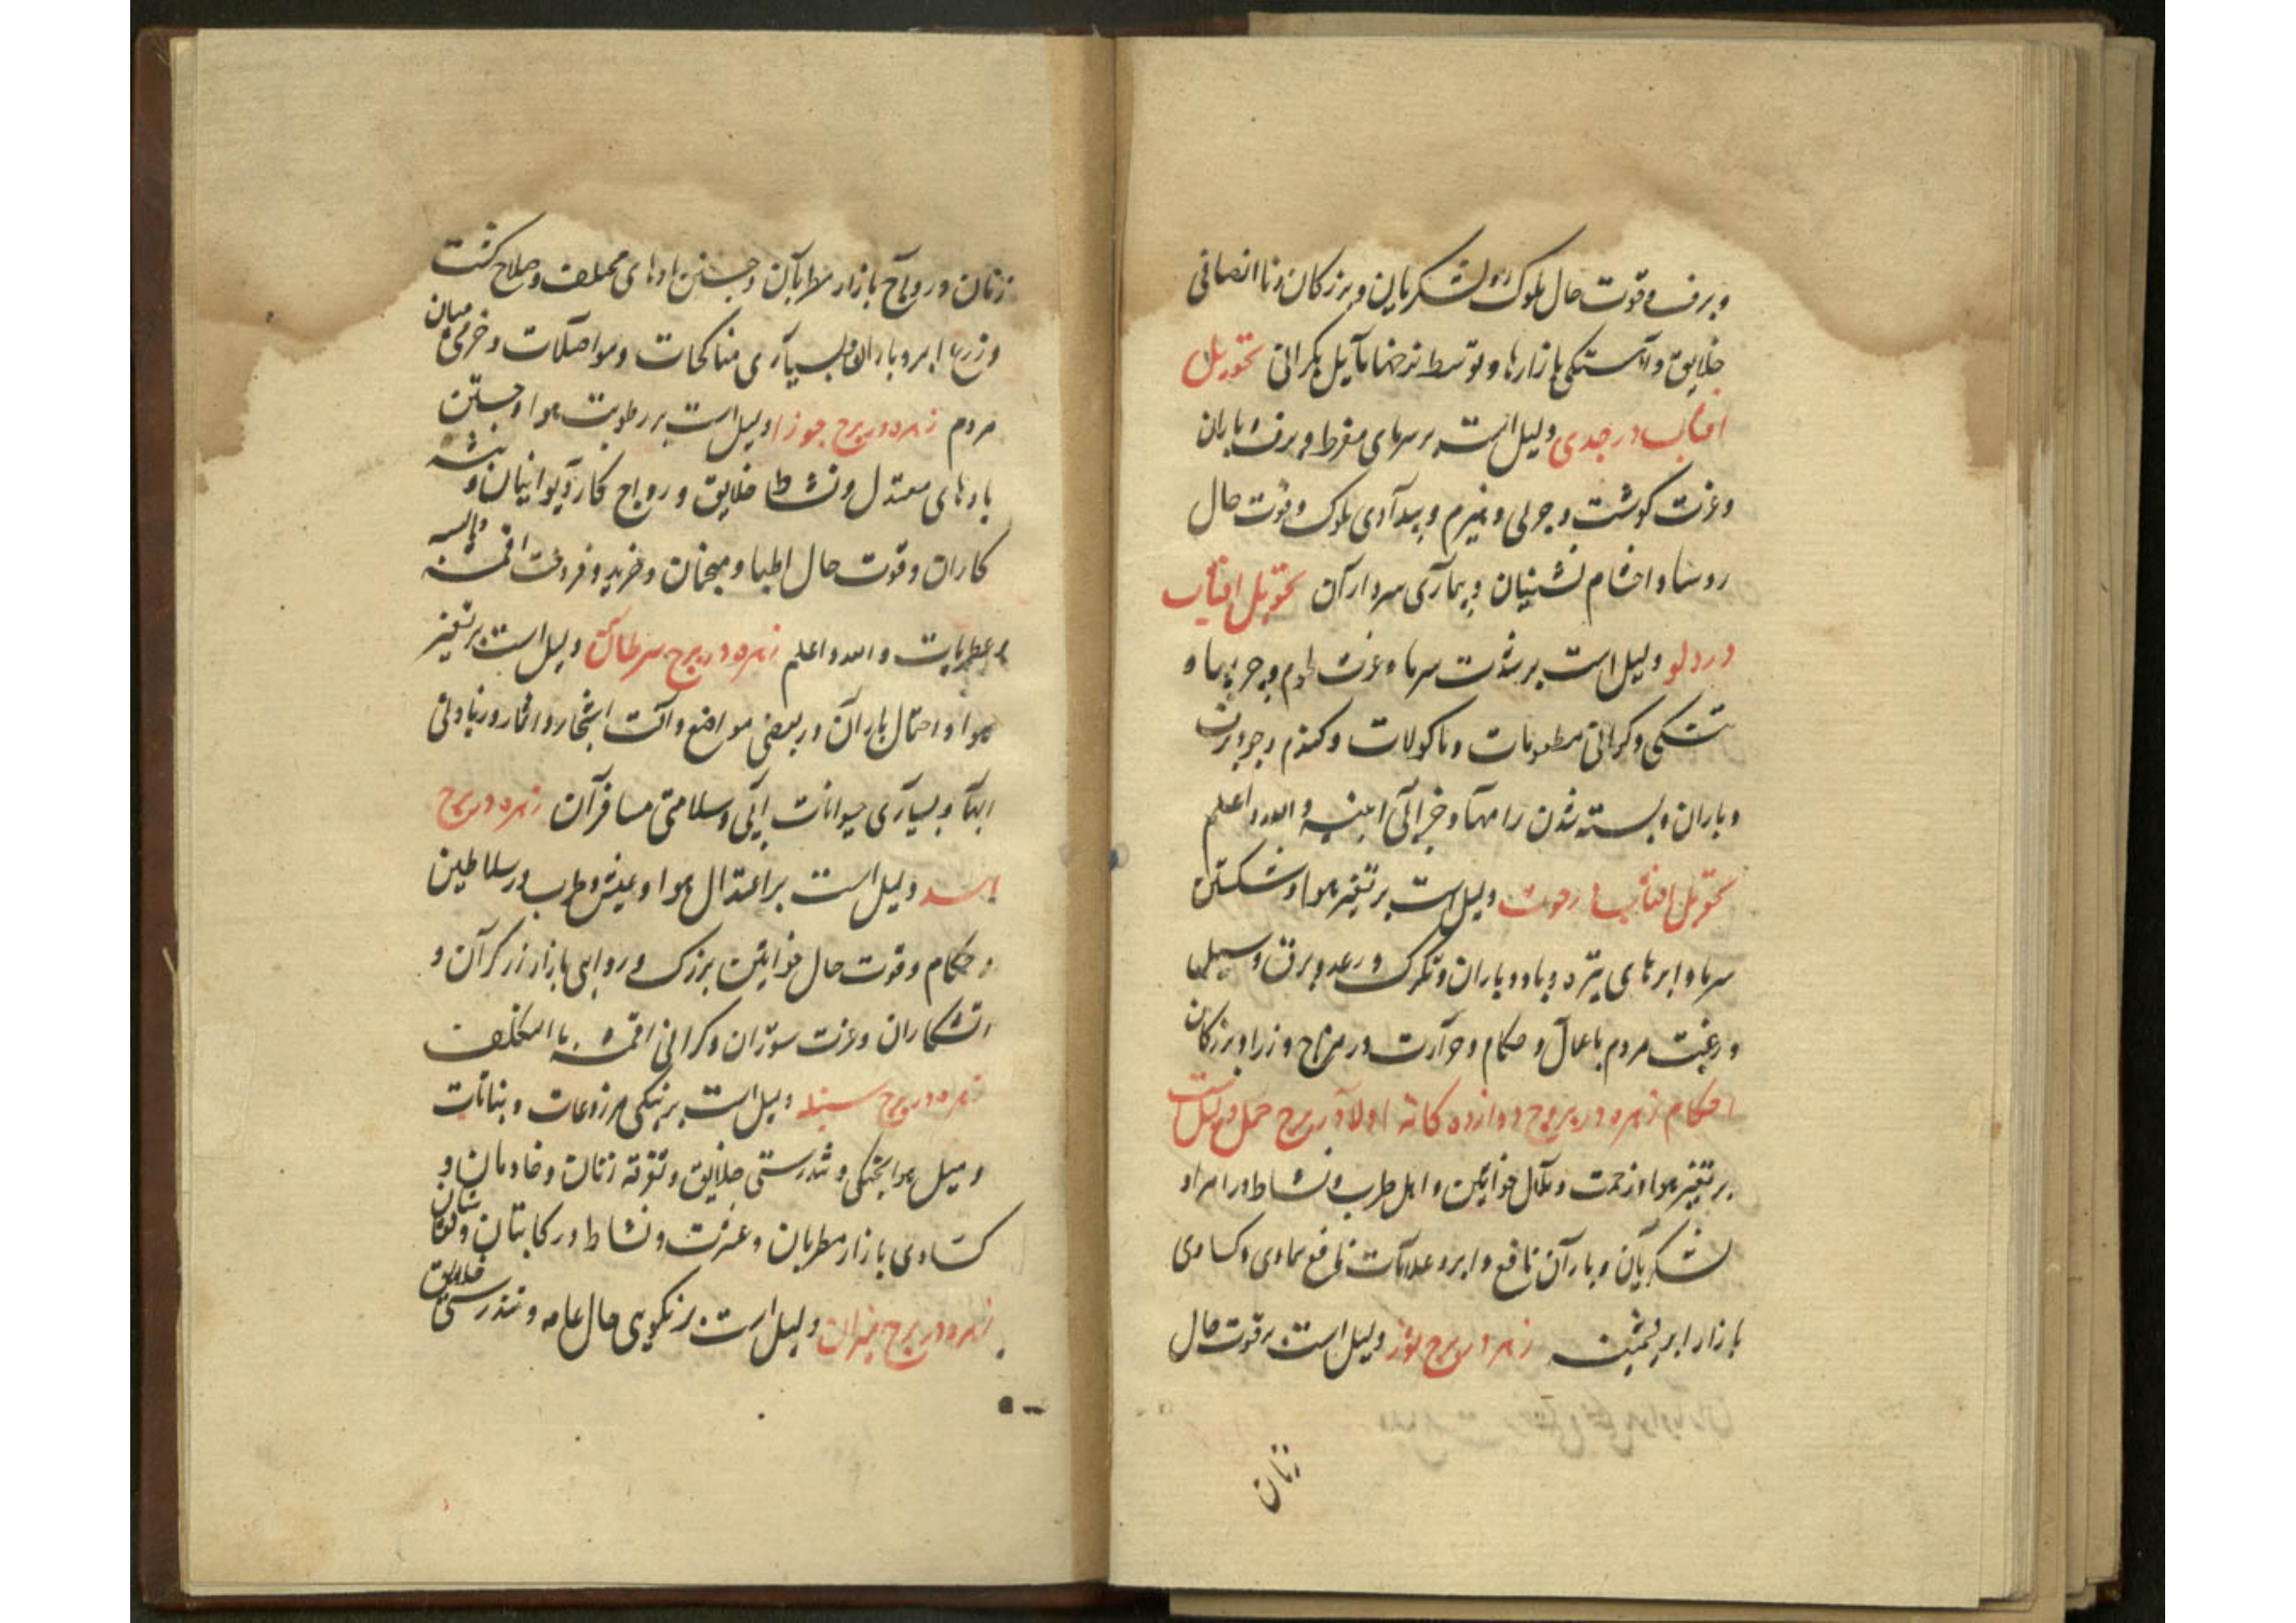 و برف و قوت حال ملوک و لشکریان و بزرکان و ناانصافی
خلایق و آهستکی بازارها و توسط نرخها مایل بکرانی تحویل
افتاب در جدی دلیل است بر سرمای مفرط و برف و باران
و عزت کوشت و چربی و هیزم و بیدادی ملوک و قوت حال
روسا و احشام نشینان و بیماری سرداران تحویل افتاب
در دلو دلیل است بر شدت سرما و عزت و چربیها و
تنکی و کرانی مطعومات و ماکولات و کندم و جو و برف
و باران و بسته شدن راهها و خرابی ابنیه و الله اعلم
تحویل افتاب در حوت دلیل است بر تغیر هوا و شکستن
سرما و ابرهای تیره و باد و باران و تکرک و رعد و برق و سیلها
و رغبت مردم باعمال و حکام و حرارت در مزاج وزرا و بزرکان
احکام زهره در بروج دوازده کانه اولا در برج حمل دلیل است
بر تغیر هوا و زحمت و ملال خواتین و اهل طرب و نشاط در امرا و
لشکریان و باران نافع و ابر و علامات نافع سماوی و کسادی
بازار ابریشمینه زهره در برج ثور دلیل است بر قوت حال
زنان
زنان و رواج بازار مطربان و جستن بادهای مختلف و صلاح کشت
و زرع و ابر و باران و بسیاری مناکحات و مواصلات و خرمی میان
مردم زهره در برج جوزا دلیل است بر رطوبت هوا و جستن
بادهای معتدل و نشاط خلایق و رواج کار دیوانیان و پیشه
کاران و قوت حال اطبا و منجمان و خرید و فروخت اقمشه و البسه
و عطریات و الله اعلم زهره در برج سرطان دلیل است بر تغیر
هوا و احتمال باران در بعضی مواضع و آفت اشجار و اثمار و زیادتی
ابها و بسیاری حیوانات ابی و سلامتی مسافران زهره در برج
اسد دلیل است بر اعتدال هوا و عیش و طرب در سلاطین
و حکام و قوت حال خواتین بزرک و روایی بازار زرکران و
اتشکاران و عزت ستوران و کرانی اقمشه با تکلف
زهره در برج سنبله دلیل است بر نیکی مزروعات و نباتات
و میل هوا بخنکی و تندرستی خلایق و تفرقه زنان و خادمان و
کسادی بازار مطربان و عشرت و نشاط در کاتبان و نقاشان
زهره در برج میزان دلیل است بر نکویی حال عامه و تندرستی خلایق